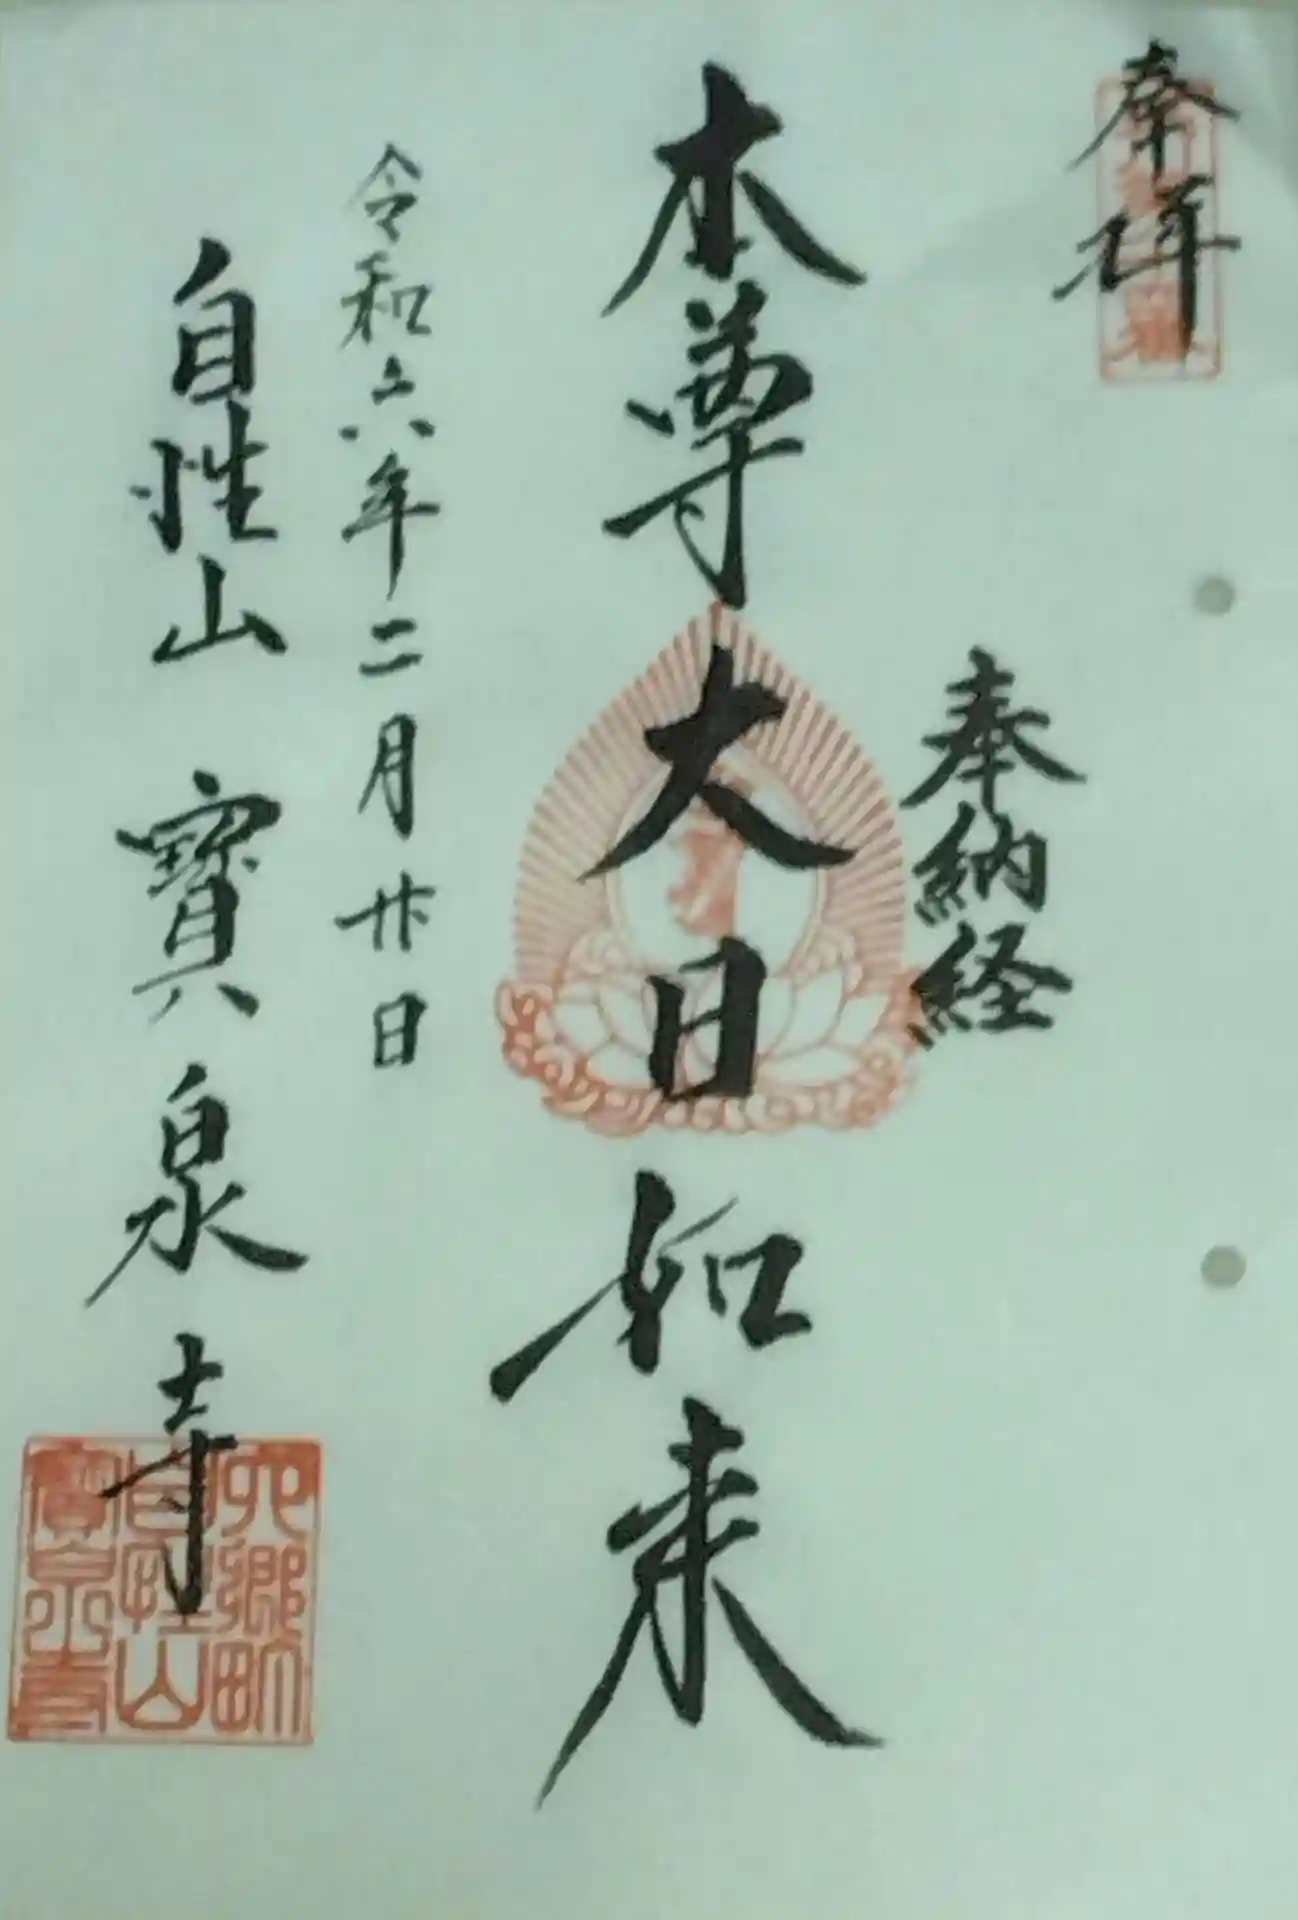 奉拝
奉納経
本尊大日如来
令和六年二月廿日
自性山 寳泉寺
六郷町
自性山
寳泉寺